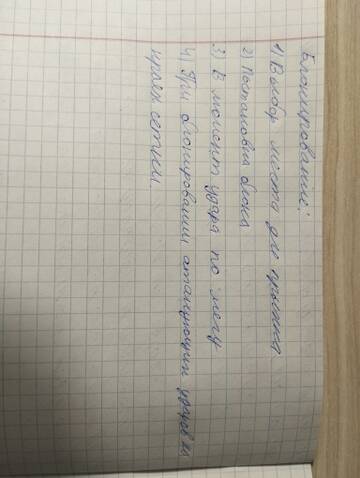 Блокирование:
1) Выбор места для прыжка
2) Постановка блока
3) В момент удара по мячу
4) При блокировании атакующих ударов
краёв сетки.